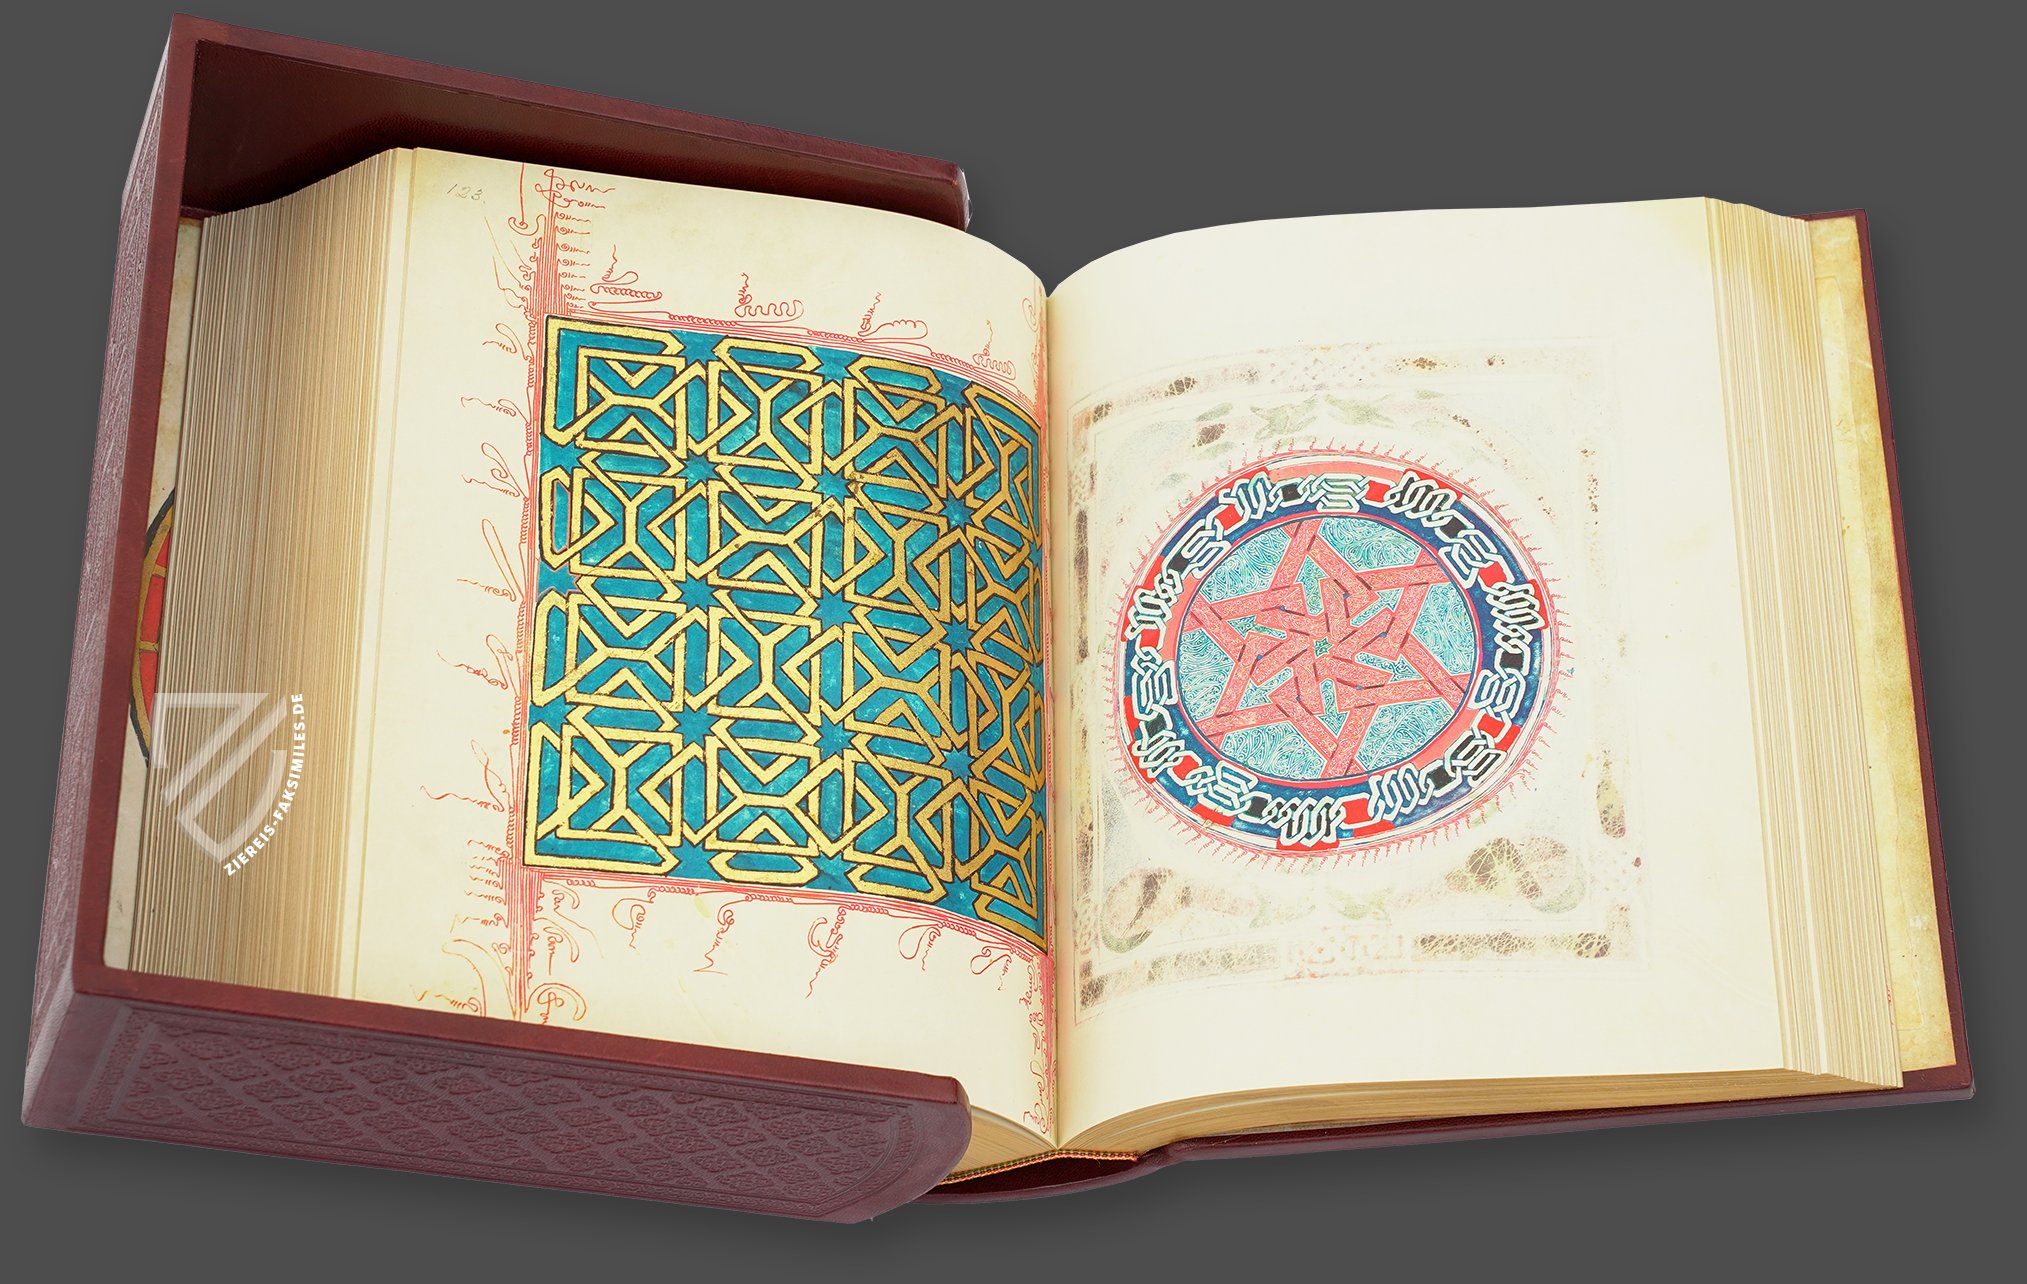 123.
ZIEREIS-FAKSIMILES.DE